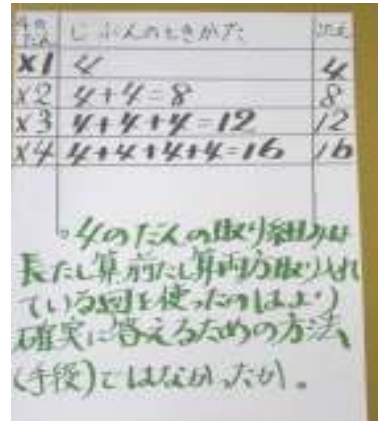 4のだん じぶんのときかた
×1 4 4
×2 4+4=8 8
×3 4+4+4=12 12
×4 4+4+4+4=16 16
。4のだんの取り組みは
長たし算前たし算両方取り入れ
ている図を使ったのはより
確実に答えるための方法、
(手段)ではなかったか。